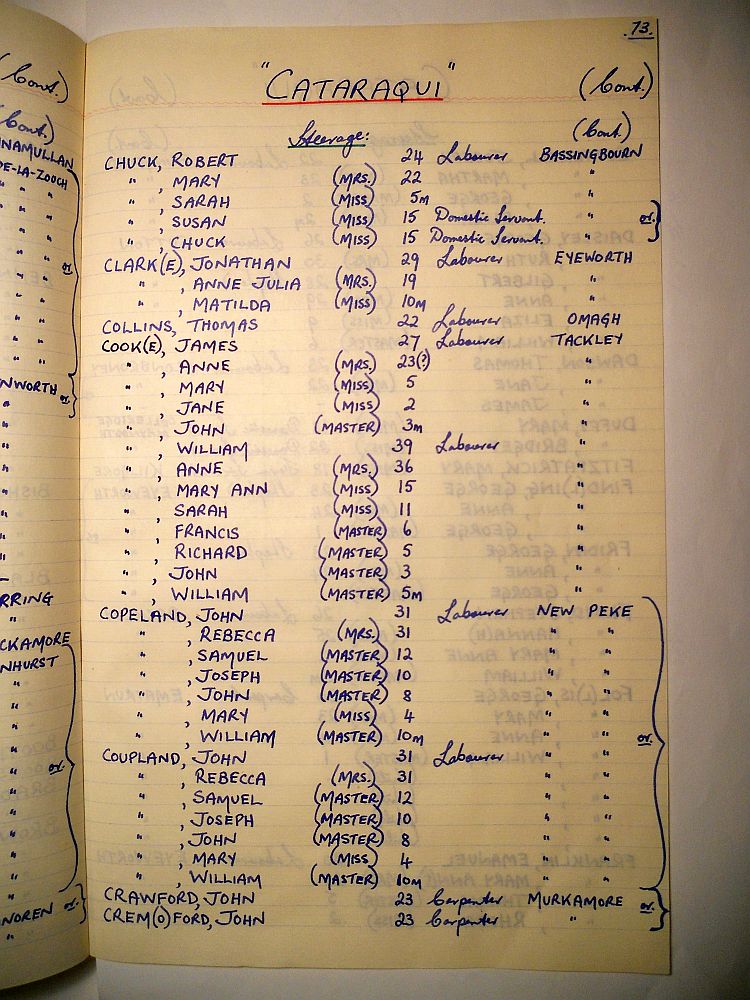 73.
"CATARAQUI" (Cont.)
Steerage: (Cont)
CHUCK, ROBERT 24 Labourer BASSINGBOURN
" , MARY (MRS.) 22 "
" , SARAH (MISS) 5m "
" , SUSAN (MISS) 15 Domestic Servant. " or.
" , CHUCK (MISS) 15 Domestic Servant. "
CLARK(E), JONATHAN 29 Labourer EYEWORTH
" , ANNE JULIA (MRS.) 19 "
" , MATILDA (MISS) 10m "
COLLINS, THOMAS 22 Labourer OMAGH
COOK(E), JAMES 27 Labourer TACKLEY
" , ANNE (MRS.) 23(?) "
" , MARY (MISS) 5 "
" , JANE (MISS) 2 "
" , JOHN (MASTER) 3m "
" , WILLIAM 39 Labourer "
" , ANNE (MRS.) 36 "
" , MARY ANN (MISS) 15 "
" , SARAH (MISS) 11 "
" , FRANCIS (MASTER) 6 "
" , RICHARD (MASTER) 5 "
" , JOHN (MASTER) 3 "
" , WILLIAM (MASTER) 5m "
COPELAND, JOHN 31 Labourer NEW PEKE
" , REBECCA (MRS.) 31 " "
" , SAMUEL (MASTER) 12 " "
" , JOSEPH (MASTER) 10 " "
" , JOHN (MASTER) 8 " "
" , MARY (MISS) 4 " "
" , WILLIAM (MASTER) 10m " " or.
COUPLAND, JOHN 31 Labourer " "
" , REBECCA (MRS.) 31 " "
" , SAMUEL (MASTER) 12 " "
" , JOSEPH (MASTER) 10 " "
" , JOHN (MASTER) 8 " "
" , MARY (MISS) 4 " "
" , WILLIAM (MASTER) 10m " "
CRAWFORD, JOHN 23 Carpenter MURKAMORE or.
CREM(O)FORD, JOHN 23 Carpenter "
(Cont.)
(Cont.)
NAMULLAN
DE-LA-ZOUCH
or.
NWORTH
or.
RRING
CKAMORE
NHURST
or.
NDREN or.